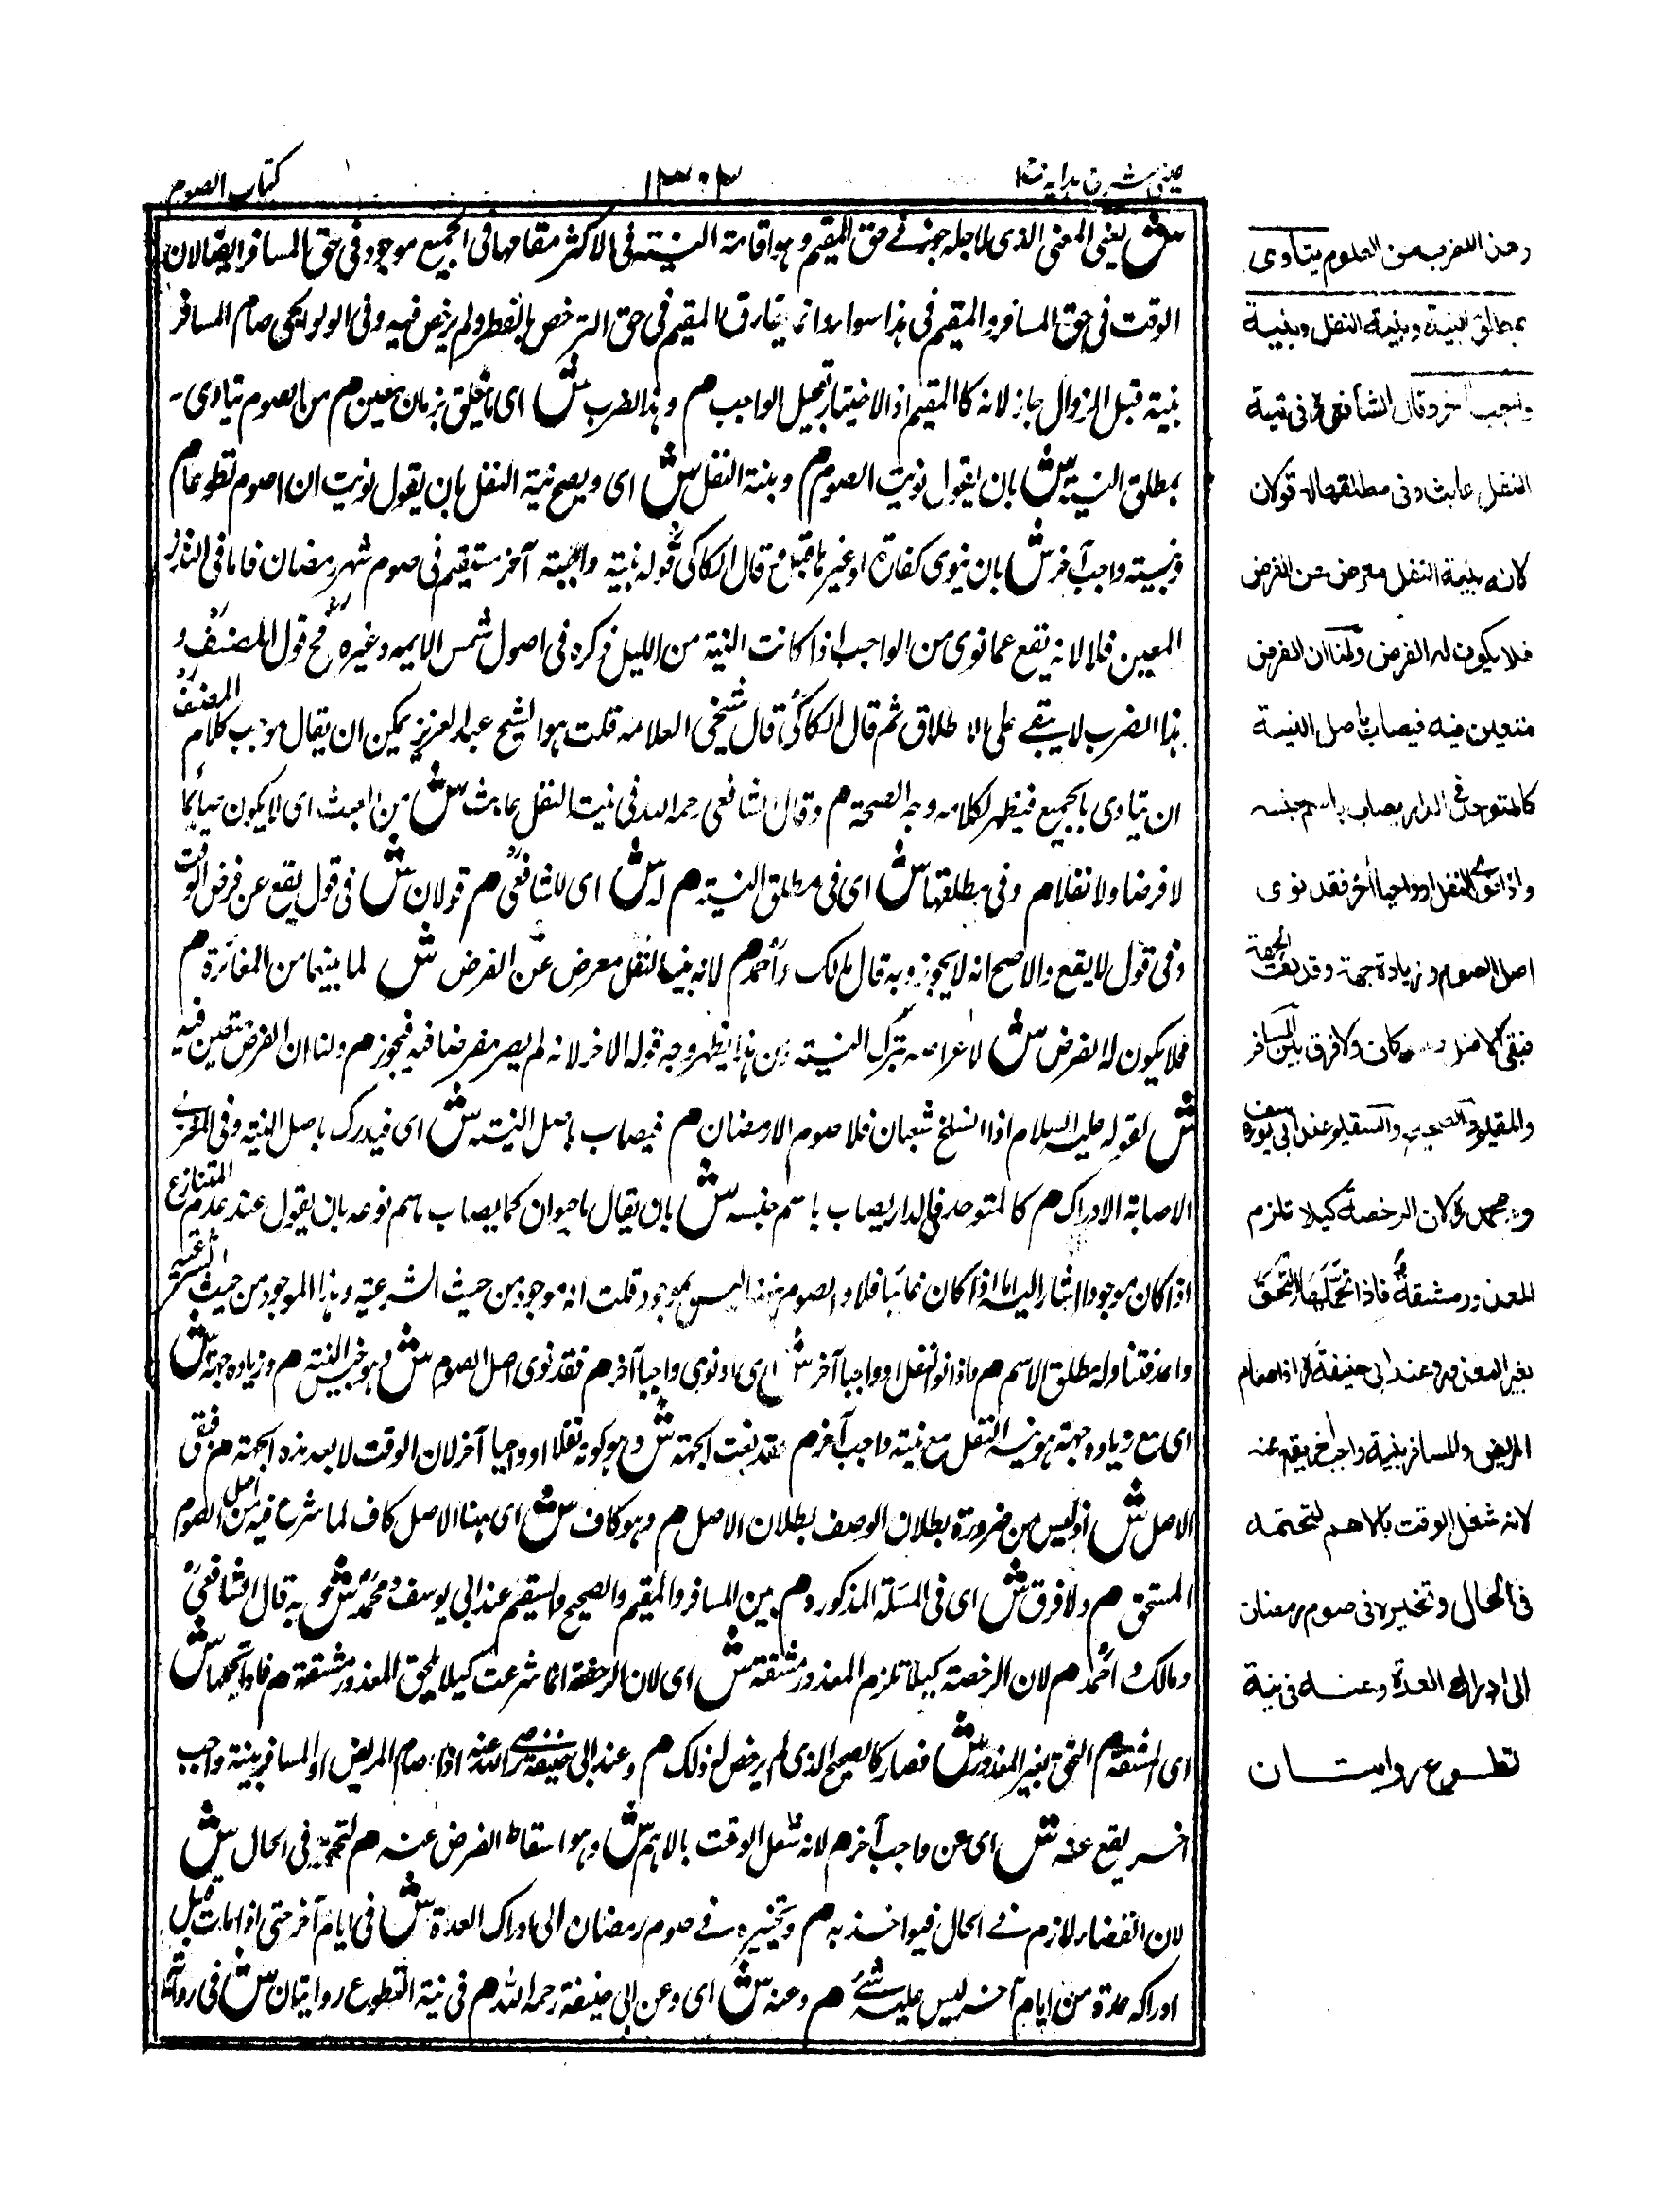 عینی شرح ہدایہ ج ا
۱۳۰۳
کتاب الصوم
ش یعنی المعنی الذی لاجلہ جوز فے حق المقیم وہو اقامۃ النیتہ فی الاکثر مقامہا فی الجمیع موجود فی حق المسافر ایضا لان
الوقت فی حق المسافر والمقیم فی ہذا سواء وانما یفارق المقیم فی حق الترخص بالفطر ولم یرخص فیہ وفی الولوالجی صام المسافر
بنیۃ قبل الزوال جاز لانہ کالمقیم اذ الاختیار تعجیل الواجب م وہذا الضرب ش ای ما تعلق بزمان معین م من الصوم یتادی
بمطلق النیتہ ش بان یقول نویت الصوم م وبنیۃ النفل ش ای ویصح بنیۃ النفل بان یقول نویت ان اصوم تطوعا م
وبنیتہ واجب آخر ش بان ینوی کفارۃ او غیرہا قیل قال الکاکی قولہ بنیۃ واجب آخر مستقیم فی صوم شہر رمضان فاما فی النذر
المعین فلا لانہ یقع عما نوی من الواجب اذا کانت النیۃ من اللیل ذکرہ فی اصول شمس الایمہ وغیرہ فح قول المصنف و
ہذا الضرب لا یبقے علی الاطلاق ثم قال الکاکی قال شیخی العلامہ قلت ہو الشیخ عبد العزیز یمکن ان یقال موجب کلام المصنف
ان یتادی بالجمیع فیظہر لکلامہ وجہ الصحۃ م وقال الشافعی رحمہ اللہ فی نیت النفل عابث ش من العبث ای لا یکون صائما
لا فرضا ولا نفلا م وفی مطلقہا ش ای فی مطلق النیتہ م لہ ش ای للشافعی م قولان ش فی قول یقع عن فرض الوقت
وفی قول لا یقع والاصح انہ لا یجوز وبہ قال مالک واحمد م لانہ بنیۃ النفل معرض عن الفرض ش لما بینہما من المغائرۃ م
فلا یکون لہ الفرض ش لاعراضہ بترک النیتہ ومن ہذا یظہر وجہ قولہ الاخر لانہ لم یصر معرضا فیہ فیجوز م ولنا ان الفرض متعین فیہ
ش لقولہ علیہ السلام اذا انسلخ شعبان فلا صوم الا رمضان م فیصاب باصل النیتہ ش ای فیدرک باصل النیۃ وفی المغرب
الاصابۃ الادراک م کالمتوحد فی الدار یصاب باسم جنسہ ش بان یقال یا حیوان کما یصاب باسم نوعہ بان یقول عند عدم المتنازع
اذا کان موجودا اشار الیہ اما اذا کان غائبا فلا والصوم ہہنا لیس بموجود قلت انہ موجود من حیث الشرعیۃ وہذا الموجود من حیث الشرعیۃ
واحد فتناولہ مطلق الاسم م واذا نوی النفل او واجبا آخر ش ای او نوی واجبا آخر م فقد نوی اصل الصوم ش وہو جنس النیتہ م وزیادہ جہتہ ش
ای مع زیادہ جہتہ ہو نیۃ النفل مع نیتہ واجب آخر م فقد لغت الجہتہ ش وہو کونہ نفلا او واجبا آخر لان الوقت لا بعد ہذہ الجہتہ م فبقی
الاصل ش اذ لیس من ضرورۃ بطلان الوصف بطلان الاصل م وہو کاف ش ای ہنا الاصل کاف لما شرع فیہ من اصل الصوم
المستحق م ولا فرق ش ای فی المسئلۃ المذکورہ م بین المسافر والمقیم والصحیح والسقیم عند ابی یوسف ومحمد ش وبہ قال الشافعی
ومالک واحمد م لان الرخصۃ کیلا تلزم المعذور مشقتہ ش ای لان الرخصۃ انما شرعت کیلا یلحق المعذور مشقتہ م فاذا تحملہا ش
ای المشقۃ م التحق بغیر المعذور ش فصار کالصحیح الذی لم یرخص لہ ذلک م وعند ابی حنیفۃ رضی اللہ عنہ اذا صام المریض او المسافر بنیۃ واجب
آخر یقع عنہ ش ای عن واجب آخر م لانہ شغل الوقت بالاہم ش وہو اسقاط الفرض عنہ م لتحتمہ فی الحال ش
لان القضاء لازم فے الحال فیواخذ بہ م وتخییرہ فے صوم رمضان الی ادراک العدۃ ش فی ایام آخر حتی اذا مات قبل
ادراکہ عدۃ من ایام آخر لیس علیہ شئے م وعنہ ش ای وعن ابی حنیفۃ رحمہ اللہ م فی نیۃ التطوع روایتان ش فی روایۃ
وهذا الضرب من الصوم يتأدى
بمطلق النية وبنية النفل وبنية
واجب آخر وقال الشافعي في نية
النفل عابث وفي مطلقها له قولان
لانه بنية النفل معرض عن الفرض
فلا يكون له الفرض ولنا ان الفرض
متعين فيه فيصاب باصل النية
كالمتوحد في الدار يصاب باسم جنسه
واذا نوى النفل او واجبا آخر فقد نوى
اصل الصوم وزيادة جهة وقد لغت الجهة
فبقي الاصل وهو كاف ولا فرق بين المسافر
والمقيم والصحيح والسقيم عند ابي يوسف
ومحمد لان الرخصة كيلا تلزم
المعذور مشقة فاذا تحملها التحق
بغير المعذور وعند ابي حنيفة اذا صام
المريض والمسافر بنية واجب آخر يقع عنه
لانه شغل الوقت بالاهم لتحتمه
في الحال وتخيره في صوم رمضان
الى ادراك العدة وعنه في نية
تطوع روايتان